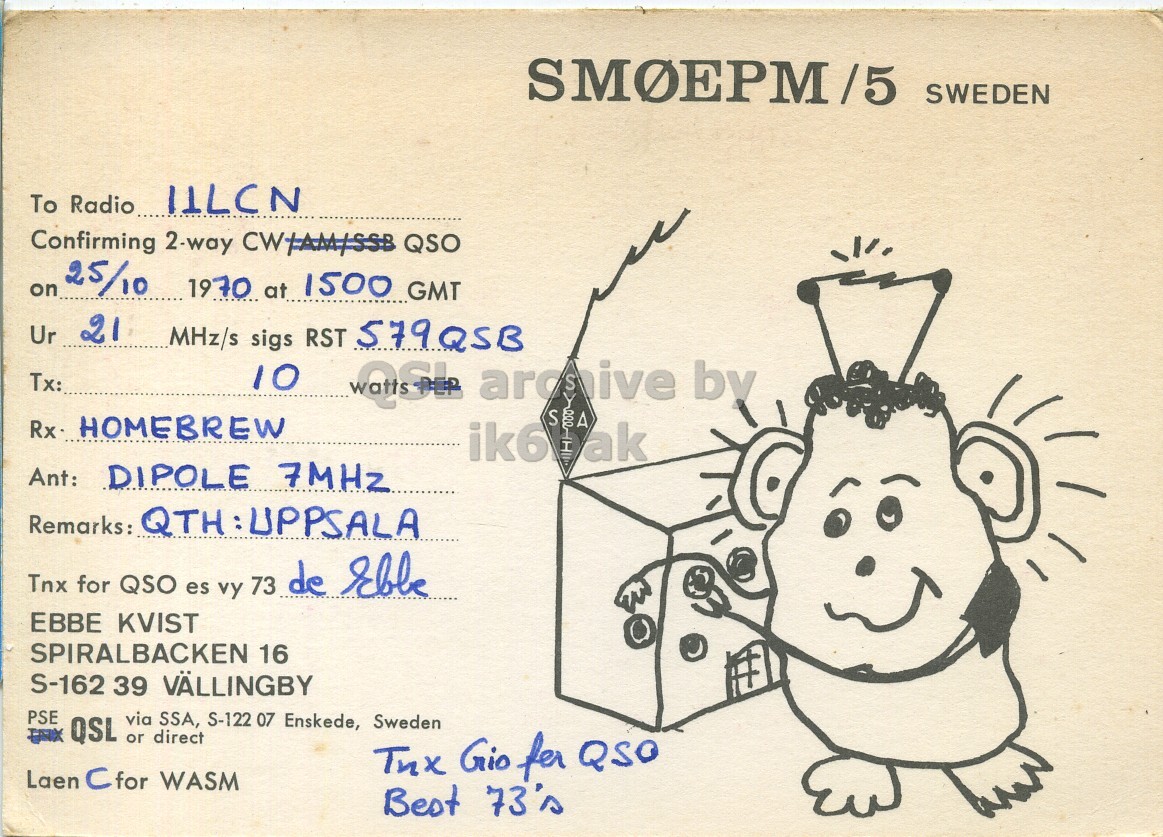 SMØEPM/5 SWEDEN
To Radio I1LCN
Confirming 2-way CW/AM/SSB QSO
on 25/10 1970 at 1500 GMT
Ur 21 MHz/s sigs RST 579 QSB
Tx: 10 watts PEP
Rx: HOMEBREW
Ant: DIPOLE 7MHz
Remarks: QTH: UPPSALA
Tnx for QSO es vy 73 de Ebbe
EBBE KVIST
SPIRALBACKEN 16
S-162 39 VÄLLINGBY
PSE
TNX QSL via SSA, S-122 07 Enskede, Sweden
or direct
Laen C for WASM
Tnx Gio fer QSO
Best '73's
S S A
QSL archive by
ik6